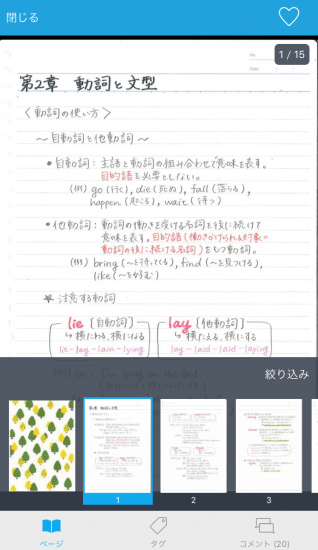 閉じる
No.
Date
1 / 15
第2章 動詞と文型
〈動詞の使い方〉
〜自動詞と他動詞〜
・自動詞：主語と動詞の組み合わせで意味を表す。
目的語を必要としない。
(例) go (行く), die (死ぬ), fall (落ちる),
happen (起こる), wait (待つ)
・他動詞：動詞の働きを受ける名詞を後に続けて
意味を表す。目的語(働きかけられる対象の
動詞の後に続ける名詞)をもつ動詞。
(例) bring (〜を持ってくる), find (〜を見つける),
like (〜を好む)
★ 注意する動詞
lie [自動詞]
lay [他動詞]
→横たわる、横になる
→横たえる、横にする
lie-lay-lain-lying
lay-laid-laid-laying
絞り込み
1
2
3
ページ
タグ
コメント (20)